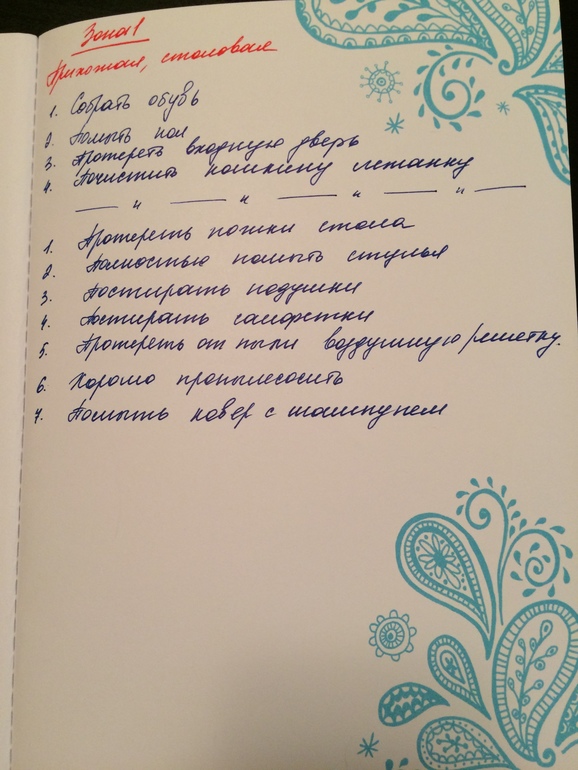 Зона 1
Прихожая, столовая
1. Собрать обувь
2. Помыть пол
3. Протереть входную дверь
4. Почистить кошкину лежанку
— и — и — и — и —
1. Протереть ножки стола
2. Полностью помыть стулья
3. Постирать подушки
4. Постирать салфетки
5. Протереть от пыли воздушную решетку.
6. Хорошо пропылесосить
7. Помыть ковер с шампунем